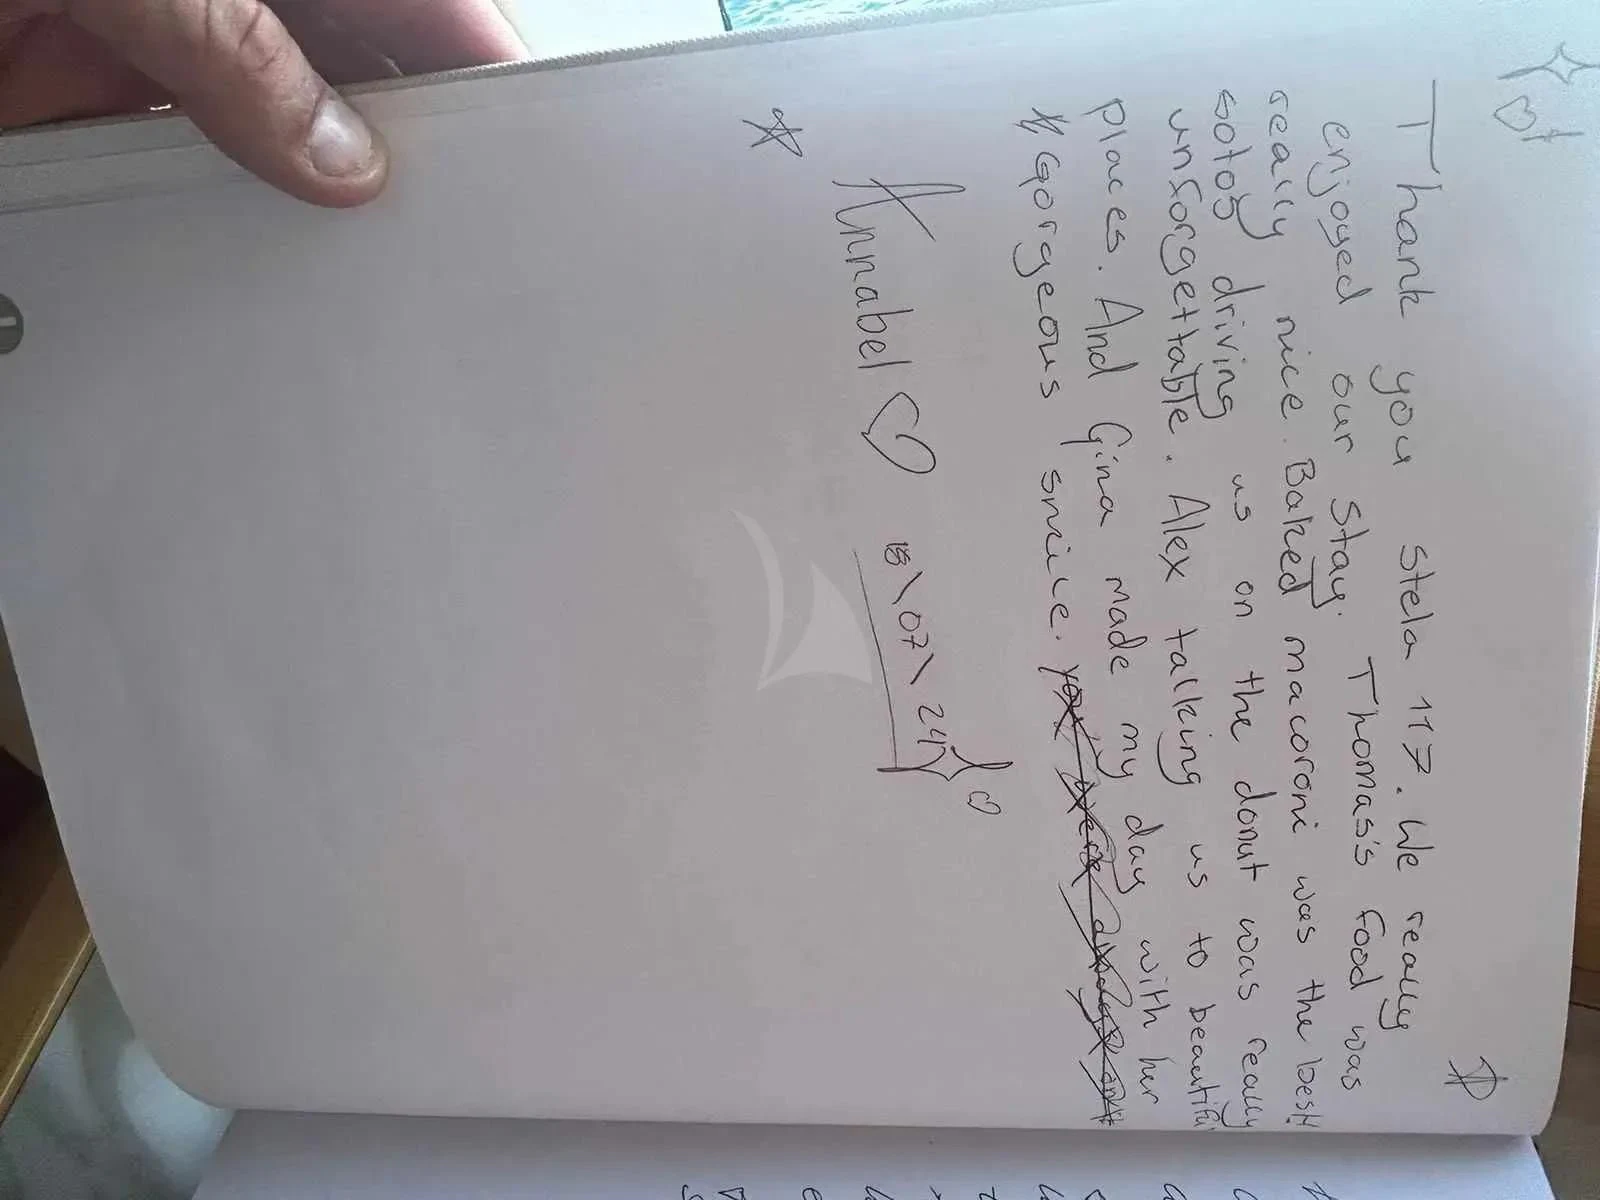 Thank you Stela 117. We really
enjoyed our Stay. Thomas's food was
really nice. Baked macoroni was the best!
sotos driving us on the donut was really
unforgettable. Alex talking us to beautiful
places. And Gina made my day with her
Gorgeous smile.
Annabel ♡ 18\07\24